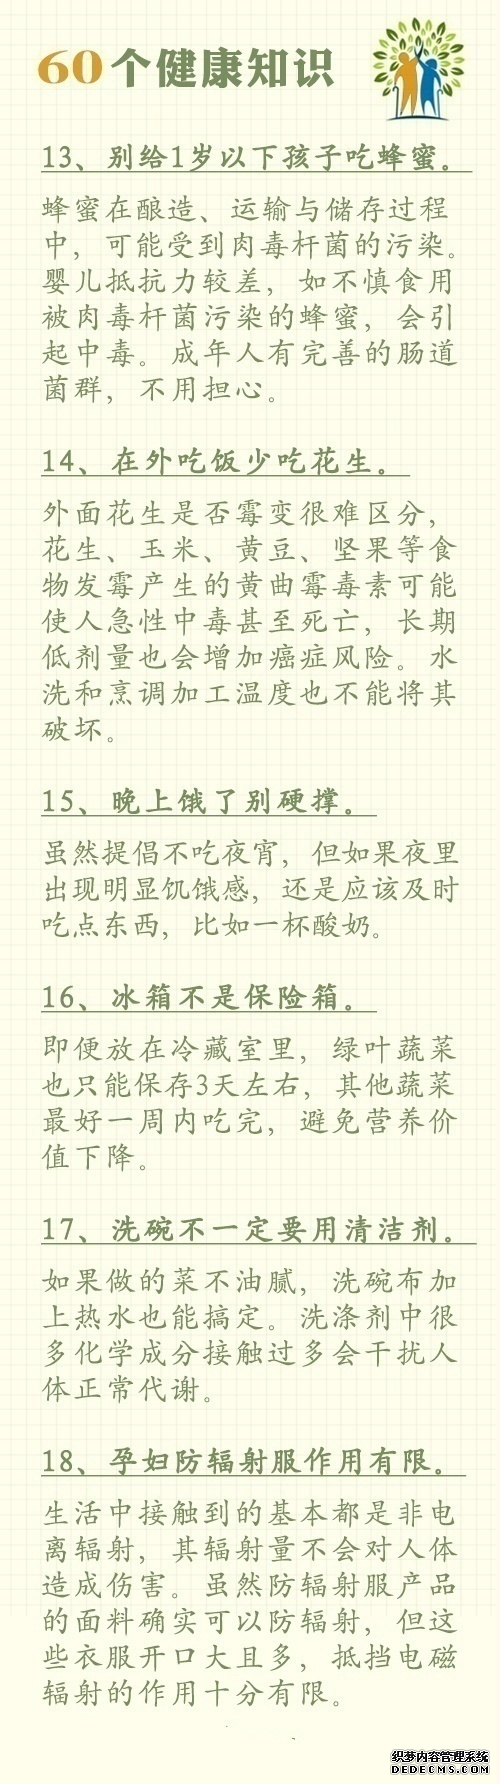 60个健康知识
13、别给1岁以下孩子吃蜂蜜。
蜂蜜在酿造、运输与储存过程
中，可能受到肉毒杆菌的污染。
婴儿抵抗力较差，如不慎食用
被肉毒杆菌污染的蜂蜜，会引
起中毒。成年人有完善的肠道
菌群，不用担心。
14、在外吃饭少吃花生。
外面花生是否霉变很难区分，
花生、玉米、黄豆、坚果等食
物发霉产生的黄曲霉毒素可能
使人急性中毒甚至死亡，长期
低剂量也会增加癌症风险。水
洗和烹调加工温度也不能将其
破坏。
15、晚上饿了别硬撑。
虽然提倡不吃夜宵，但如果夜里
出现明显饥饿感，还是应该及时
吃点东西，比如一杯酸奶。
16、冰箱不是保险箱。
即便放在冷藏室里，绿叶蔬菜
也只能保存3天左右，其他蔬菜
最好一周内吃完，避免营养价
值下降。
17、洗碗不一定要用清洁剂。
如果做的菜不油腻，洗碗布加
上热水也能搞定。洗涤剂中很
多化学成分接触过多会干扰人
体正常代谢。
18、孕妇防辐射服作用有限。
生活中接触到的基本都是非电
离辐射，其辐射量不会对人体
造成伤害。虽然防辐射服产品
的面料确实可以防辐射，但这
些衣服开口大且多，抵挡电磁
辐射的作用十分有限。
织梦内容管理系统
DEDECMS.COM